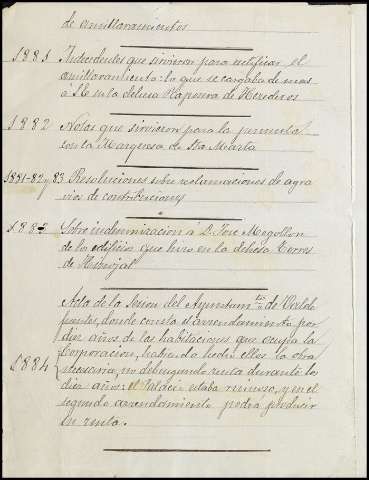 de amillaramientos
1881 Antecedentes que sirvieron para rectificar el
amillaramiento: lo que se cargaba de mas
a S.E. en la dehesa Raposera de Herederos
1882 Notas que sirvieron para la permuta
con la Marquesa de Sta Marta
1881-82 y 83 Resoluciones sobre reclamaciones de agra
vios de contribuciones
188 Sobre indemnizacion á D. José Mogollon
de los edificios que hizo en la dehesa Torres
de Hinojal
Acta de la Sesion del Ayuntamto de Valde
fuentes, donde consta el arrendamiento por
diez años, de las habitaciones que ocupa la
Corporacion, habiendo hecho ellos la obra
1884 necesaria, no devengando renta durante los
diez años: el Palacio estaba ruinoso, y en el
segundo arrendamiento podrá producir
su renta.